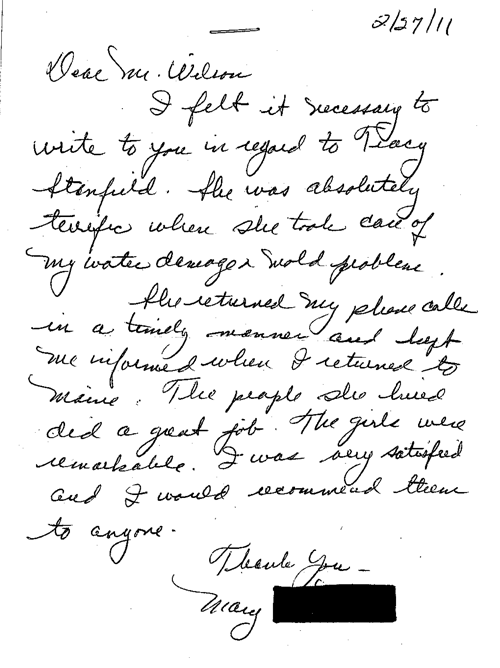 2/27/11
Dear Mr. Wilson
I felt it necessary to
write to you in regard to Tracy
Stenfield. She was absolutely
terrific when she took care of
my water damage & mold problem.
She returned my phone calls
in a timely manner and kept
me informed when I returned to
Maine. The people she hired
did a great job. The girls were
remarkable. I was very satisfied
and I would recommend them
to anyone.
Thank You –
Mary